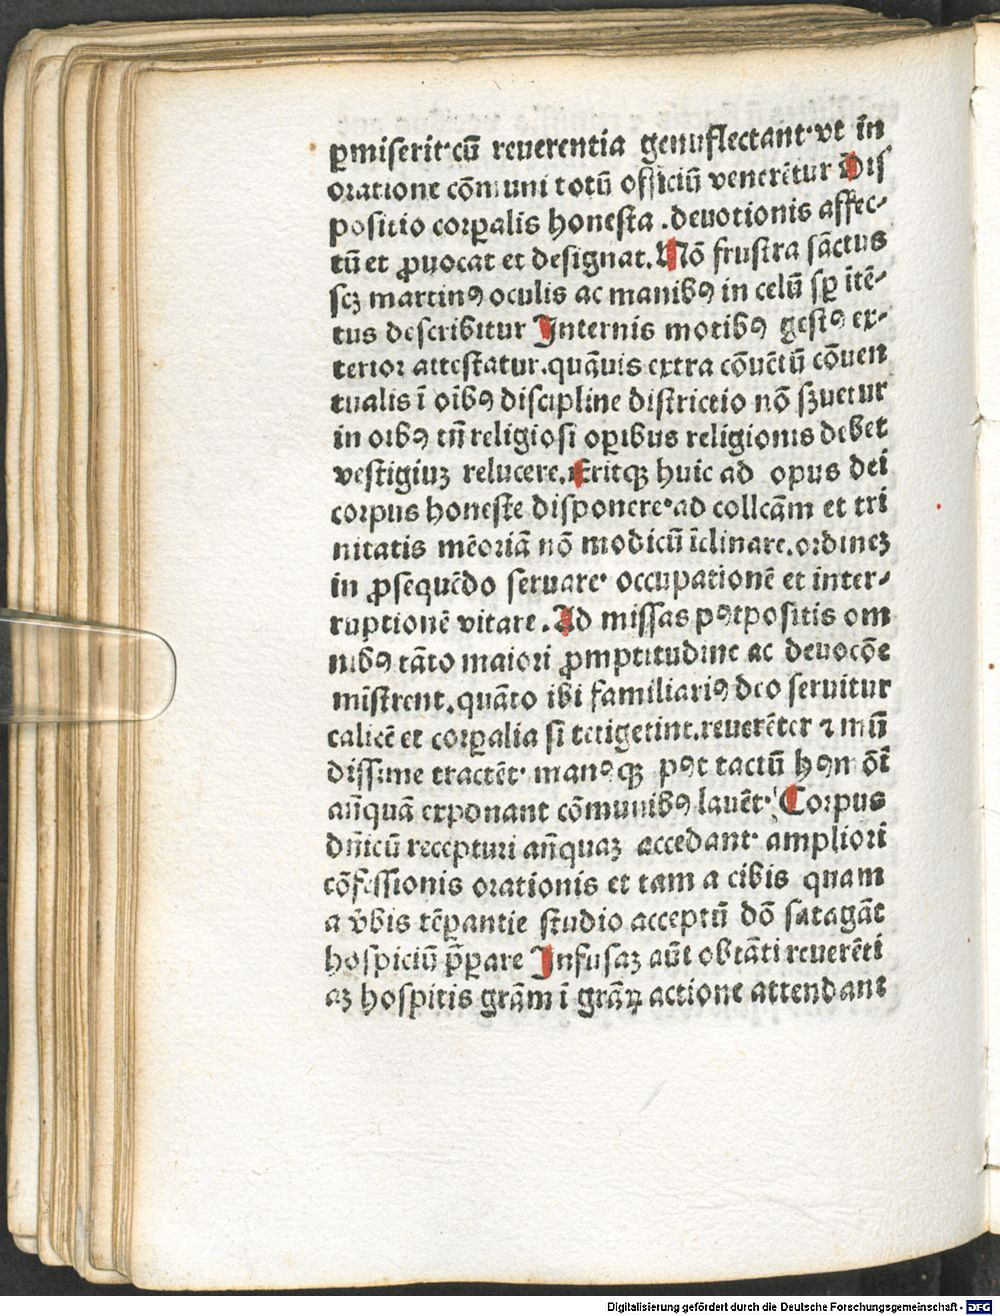 ꝑmiserit·cū reuerentia genuflectant·vt in̄
oratione cōmuni totū officiū venerētur Dis
positio corꝑalis honesta .deuotionis affec-
tū et ꝓuocat et designat. Nō frustra sāctus
scꝫ martinꝰ oculis ac manibꝰ in celū sꝑ ītē-
tus describitur Internis motibꝰ gestꝰ ex-
terior attestatur.quāuis extra cōuētū cōuen
tualis ī oībꝰ discipline districtio nō sꝫuetur
in oibꝰ tn̄ religiosi oꝑibus religionis debet
vestigiuꝫ relucere. Eritqꝫ huic ad opus dei
corpus honeste disponere·ad collcām et tri
nitatis mēoriā nō modicū īclinare.ordineꝫ
in ꝓsequēdo seruare· occupationē et inter-
ruptionē vitare . Ad missas pꝰtpositis om
nibꝰ tāto maiori ꝓmptitudine ac deuocōe
mīstrent.quāto ibi familiariꝰ deo seruitur
calicē et corꝑalia si tetigerint.reuerēter ⁊ mū
dissime tractēt· manꝰqꝫ pꝰt tactū hꝰm oī
an̄quā exponant cōmunibꝰ lauēt· Corpus
dn̄icū recepturi an̄quaꝫ accedant· ampliori
cōfessionis orationis et tam a cibis quam
a v̄bis tēꝑantie studio acceptū dō satagāt
hospiciū p̄ꝑare Infusaꝫ aūt obtāti reuerēti
aꝫ hospitis grām ī grāꝝ actione attendant
Digitalisierung gefördert durch die Deutsche Forschungsgemeinschaft - DFG